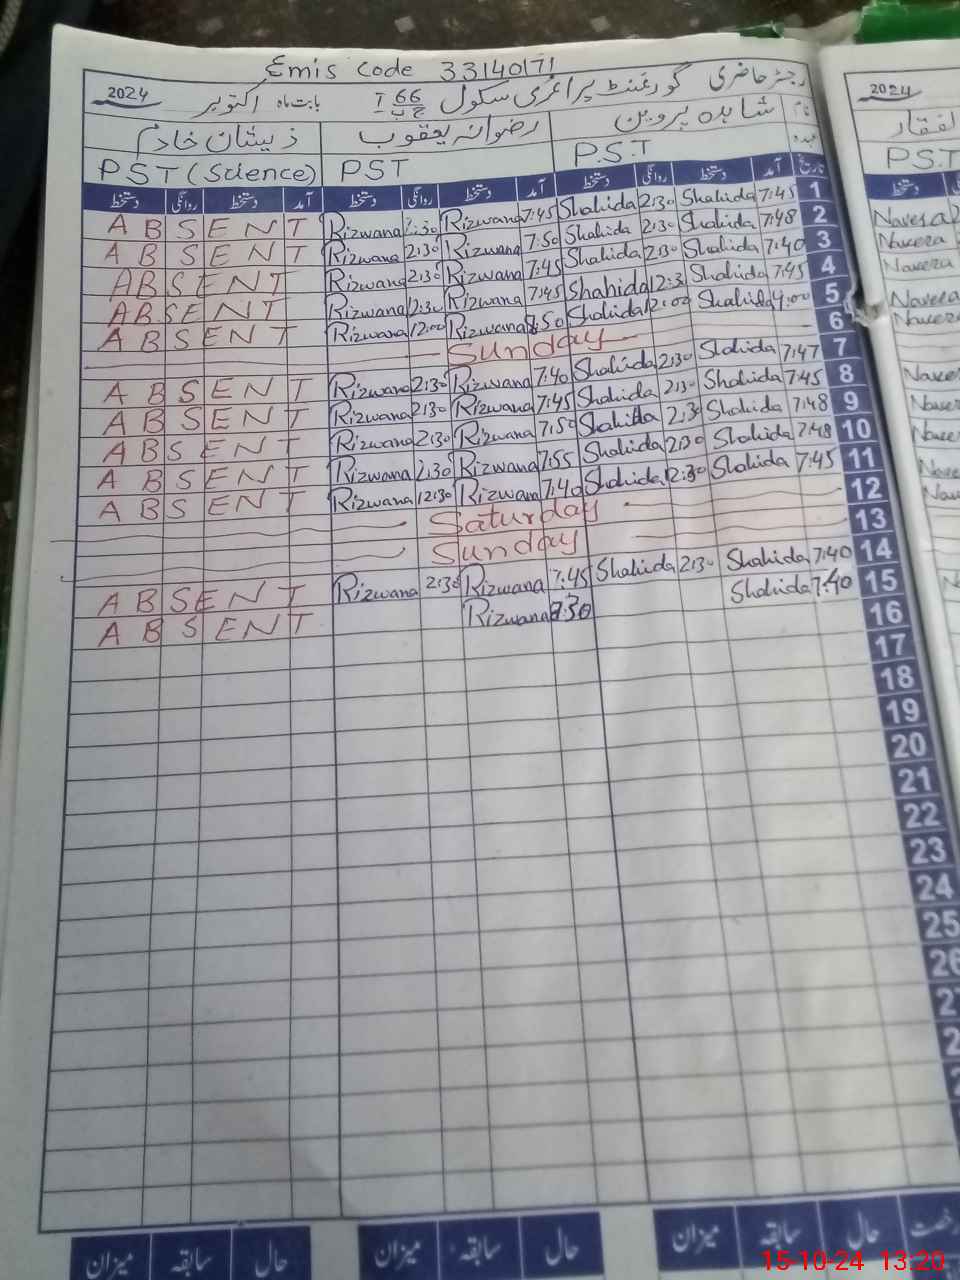 Emis Code 33140171
رجسٹر حاضری گورنمنٹ پرائمری سکول 66 ج ب I بابت ماہ اکتوبر 2024
2024
نام شاہدہ پروین رضوانہ یعقوب ذیشان خادم
عہدہ P.S.T PST PST (Science)
PST
تاریخ آمد دستخط روانگی دستخط آمد دستخط روانگی دستخط آمد دستخط روانگی دستخط
دستخط
1 7:45 Shahida 2:30 Shahida 7:45 Rizwana 2:30 Rizwana ABSENT
2 7:48 Shahida 2:30 Shahida 7:50 Rizwana 2:30 Rizwana ABSENT
3 7:40 Shahida 2:30 Shahida 7:45 Rizwana 2:30 Rizwana ABSENT
4 7:45 Shahida 12:3 Shahida 7:45 Rizwana 12:30 Rizwana ABSENT
5 Shahida 12:00 Shahida 8:50 Rizwana 12:00 Rizwana ABSENT
6 Sunday
7 7:47 Shahida 2:30 Shahida 7:40 Rizwana 2:30 Rizwana ABSENT
8 7:45 Shahida 2:30 Shahida 7:45 Rizwana 2:30 Rizwana ABSENT
9 7:48 Shahida 2:30 Shahida 7:50 Rizwana 2:30 Rizwana ABSENT
10 7:48 Shahida 2:30 Shahida 7:55 Rizwana 2:30 Rizwana ABSENT
11 7:45 Shahida 12:30 Shahida 7:40 Rizwana 12:30 Rizwana ABSENT
12 Saturday
13 Sunday
14 7:40 Shahida 2:30 Shahida 7:45 Rizwana 2:30 Rizwana ABSENT
15 7:40 Shahida Rizwana ABSENT
16
17
18
19
20
21
22
23
24
25
26
حال سابقہ میزان حال سابقہ میزان حال سابقہ میزان
15-10-24 13:20